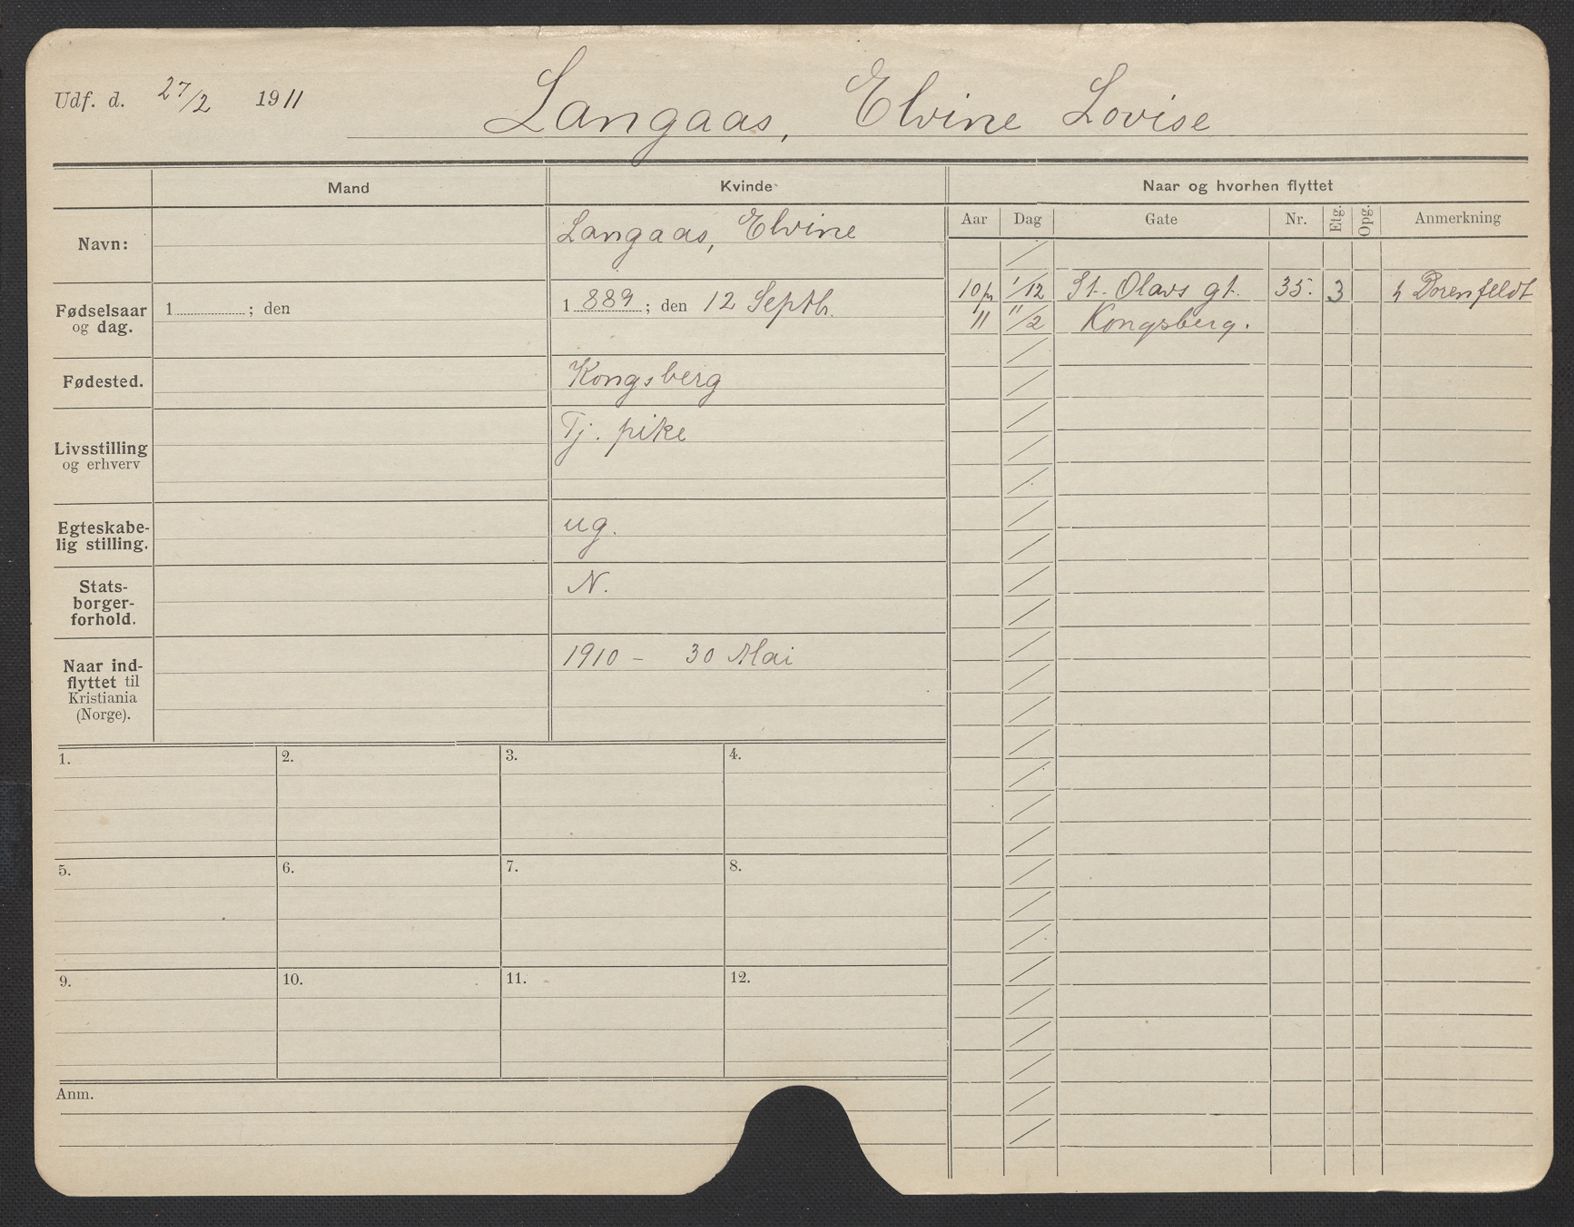 Udf. d. 27/2 1911 Langaas, Elvine Lovise
Mand Kvinde Naar og hvorhen flyttet
Aar Dag Gate Nr. Etg. Opg. Anmerkning
Navn: Langaas, Elvine
Fødselsaar og dag. 1 ; den 1 889 ; den 12 Septb.
10 1/12 St. Olavs gt. 35. 3 Dorenfeldt
11 11/2 Kongsberg.
Fødested. Kongsberg
Livsstilling og erhverv Tj. pike
Egteskabe-
lig stilling. ug.
Stats-
borger-
forhold. N.
Naar ind-
flyttet til
Kristiania
(Norge). 1910 - 30 Mai
1. 2. 3. 4.
5. 6. 7. 8.
9. 10. 11. 12.
Anm.